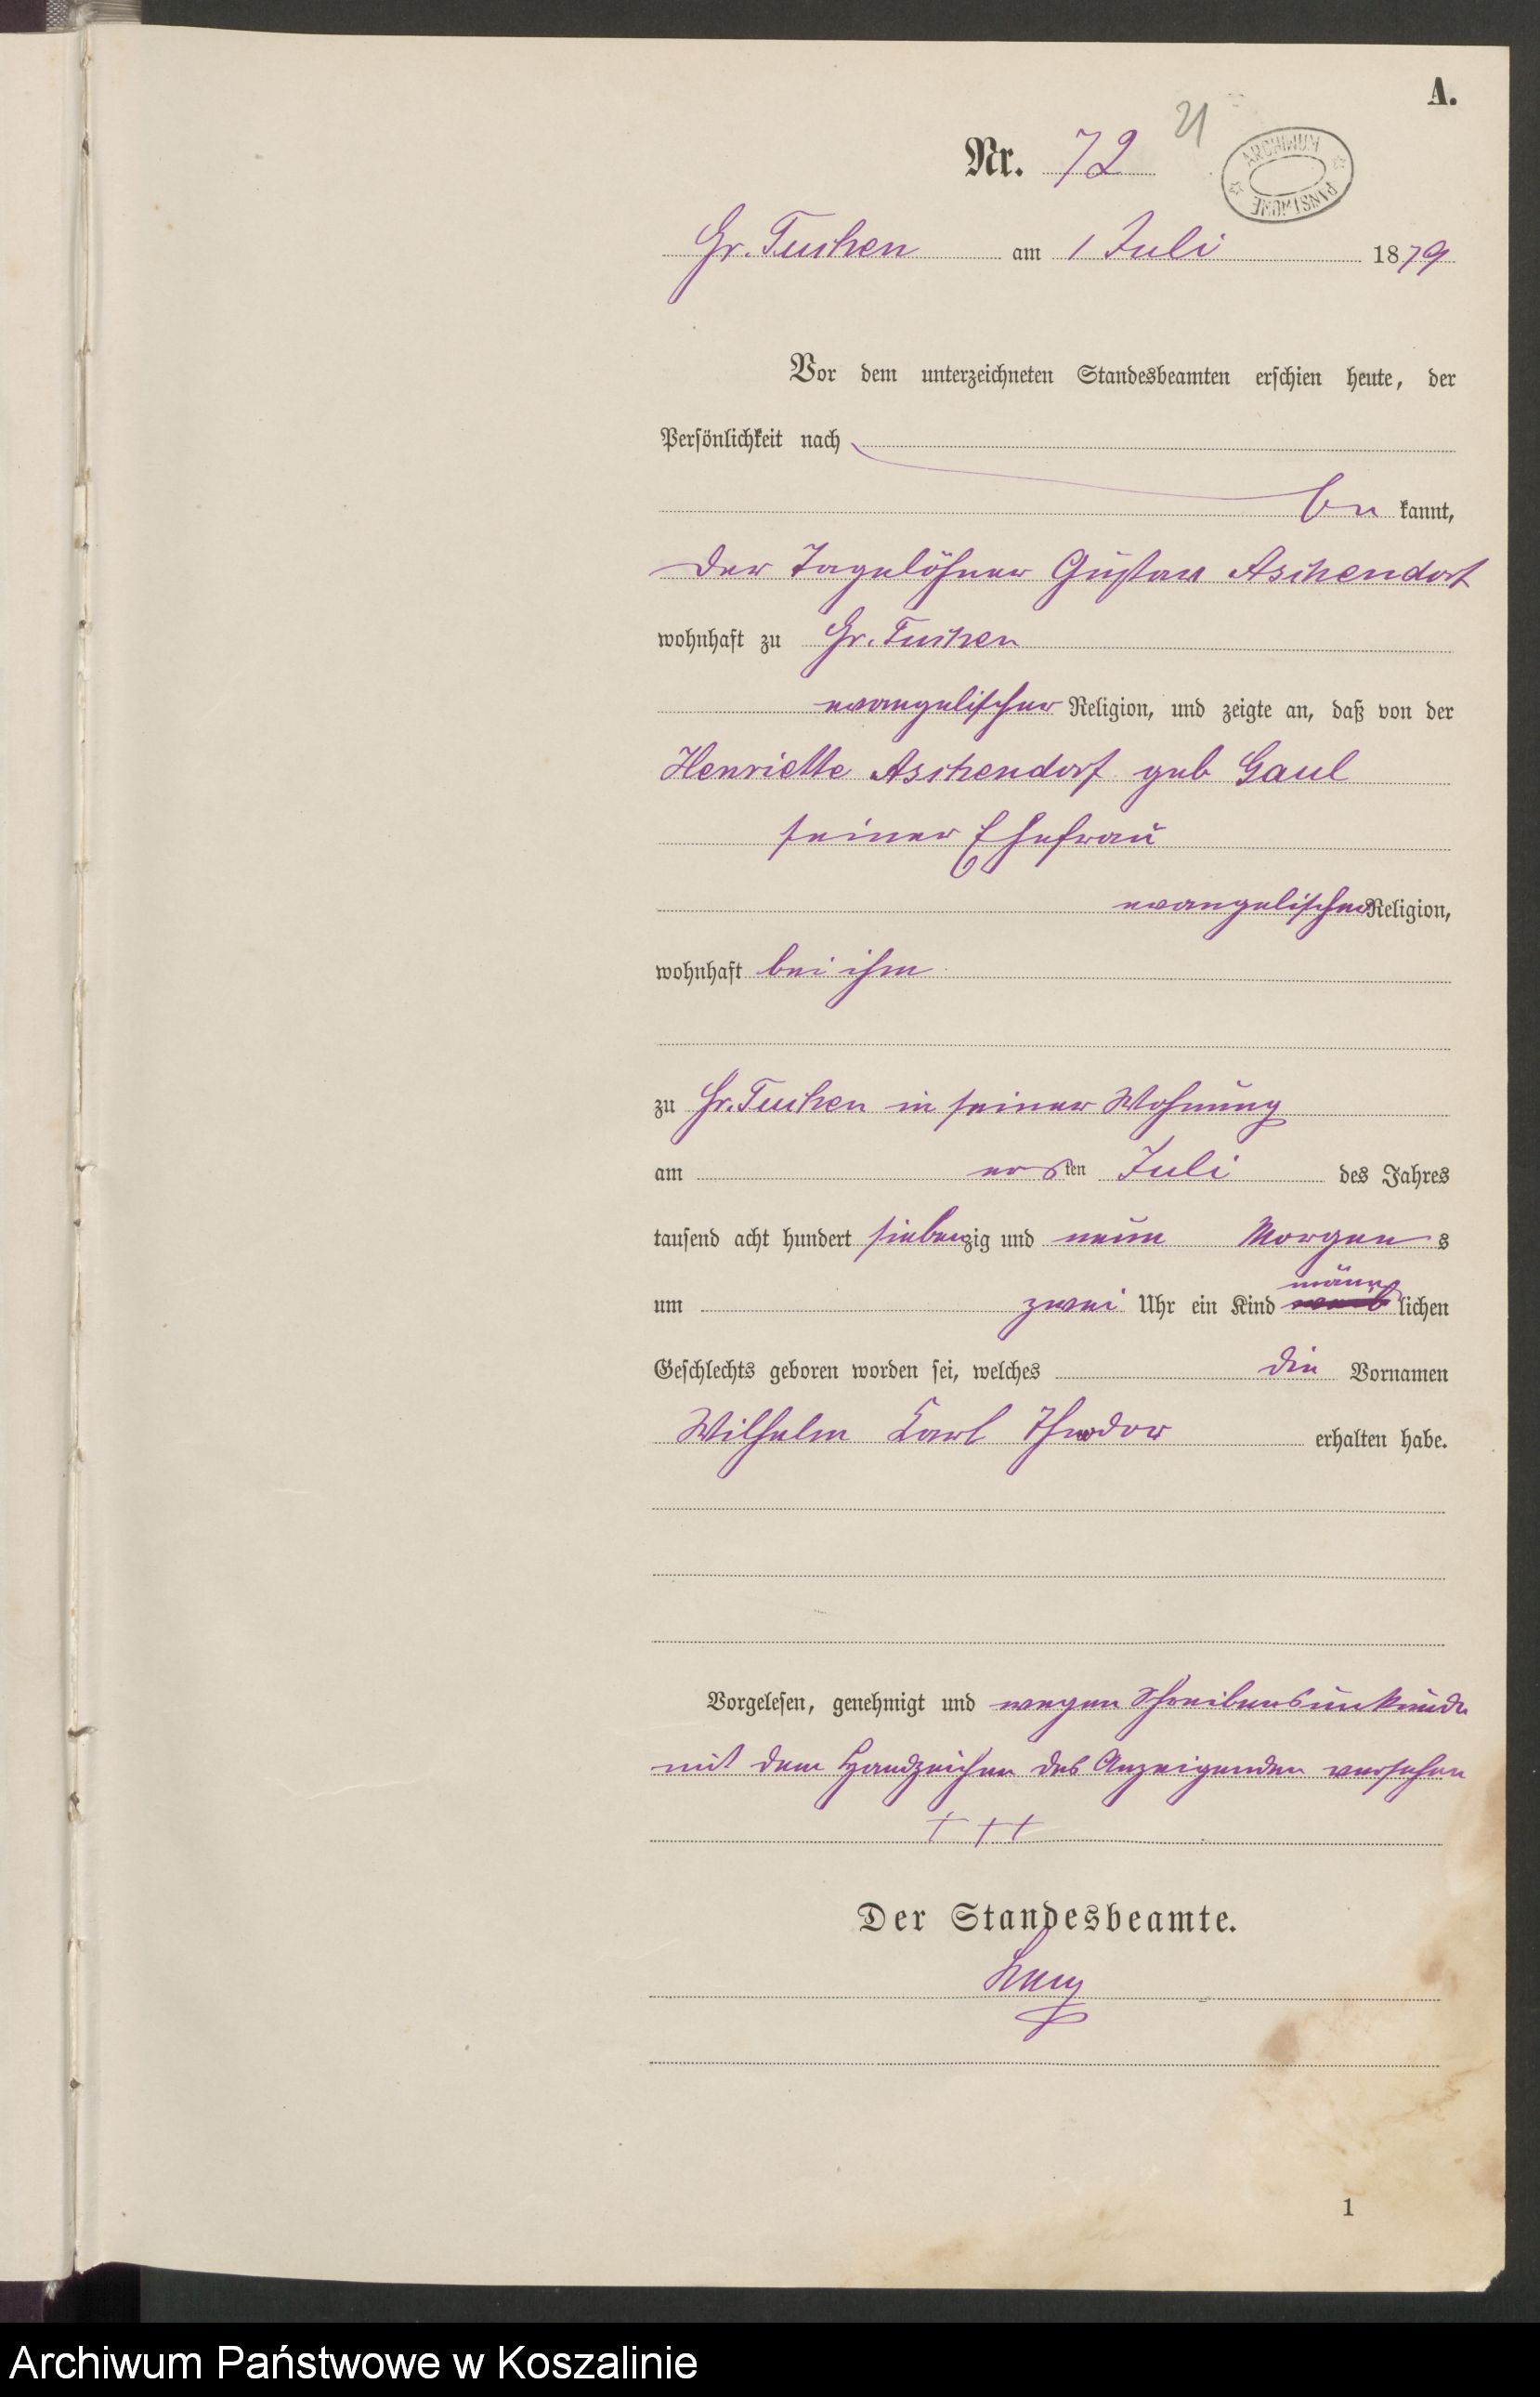 A.
Nr. 72 21
ARCHIWUM PAŃSTWOWE
Gr. Tuchen am 1 Juli 1879
Vor dem unterzeichneten Standesbeamten erschien heute, der
Persönlichkeit nach
be kannt,
der Tagelöhner Gustav Aschendorf
wohnhaft zu Gr. Tuchen
evangelischer Religion, und zeigte an, daß von der
Henriette Aschendorf geb Gaul
seiner Ehefrau
evangelischer Religion,
wohnhaft bei ihm
zu Gr. Tuchen in seiner Wohnung
am ersten Juli des Jahres
tausend acht hundert siebenzig und neun Morgens
um zwei Uhr ein Kind männlichen
Geschlechts geboren worden sei, welches die Vornamen
Wilhelm Karl Theodor erhalten habe.
Vorgelesen, genehmigt und wegen Schreibensunkunde
mit dem Handzeichen des Anzeigenden versehen
+ + +
Der Standesbeamte.
1
Archiwum Państwowe w Koszalinie